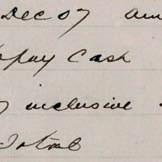 Dec 07 am
pay Cash
inclusive
Total